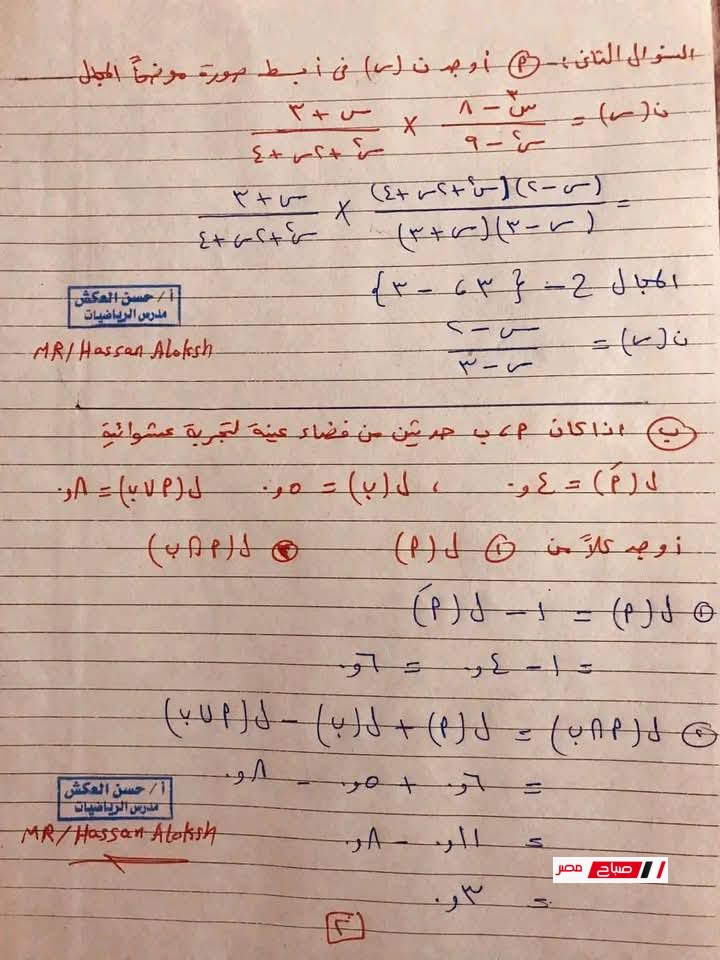 السؤال الثانى :- (أ) أوجد ن (س) فى أبسط صورة موضحاً المجال
ن(س) = (س³ - ٨)/(س² - ٩) × (س + ٣)/(س² + ٢س + ٤)
= (س - ٢)(س² + ٢س + ٤)/(س - ٣)(س + ٣) × (س + ٣)/(س² + ٢س + ٤)
المجال ح - {٣ ، -٣}
ن(س) = (س - ٢)/(س - ٣)
أ/ حسن العكش
مدرس الرياضيات
MR/Hassan Aloksh
(ب) اذا كان أ ، ب حدثين من فضاء عينة لتجربة عشوائية
ل(أَ) = ٤و. ، ل(ب) = ٥و. ل(أ∪ب) = ٨و.
أوجد كلاً من ① ل(أ) ② ل(أ∩ب)
① ل(أ) = ١ - ل(أَ)
= ١ - ٤و. = ٦و.
② ل(أ∩ب) = ل(أ) + ل(ب) - ل(أ∪ب)
= ٦و. + ٥و. - ٨و.
= ١١و. - ٨و.
= ٣و.
أ/ حسن العكش
مدرس الرياضيات
MR/Hassan Aloksh
صباح مصر
٢